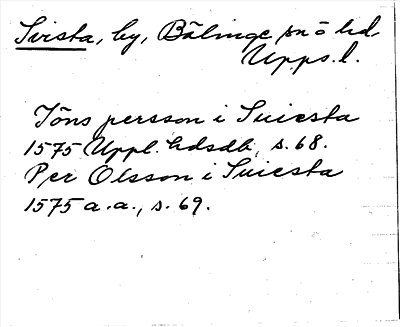 Svista, by, Bälinge sn o hd,
Upps.l.
Jöns persson i Suicsta
1575 Uppl. hdsdb, s. 68.
Per Olsson i Suicsta
1575 a.a., s. 69.